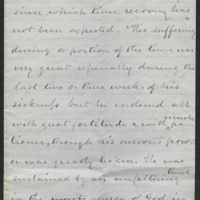 since which time recovery has
not been expected. His suffering
during a portion of the time was
very great especially during the
last two or three weeks of his
sickness but he endured all
with great fortitude & much pa-
tience, though his nervous pow-
er was greatly broken. He was
sustained by an unfaltering trust
in the mercy of God in